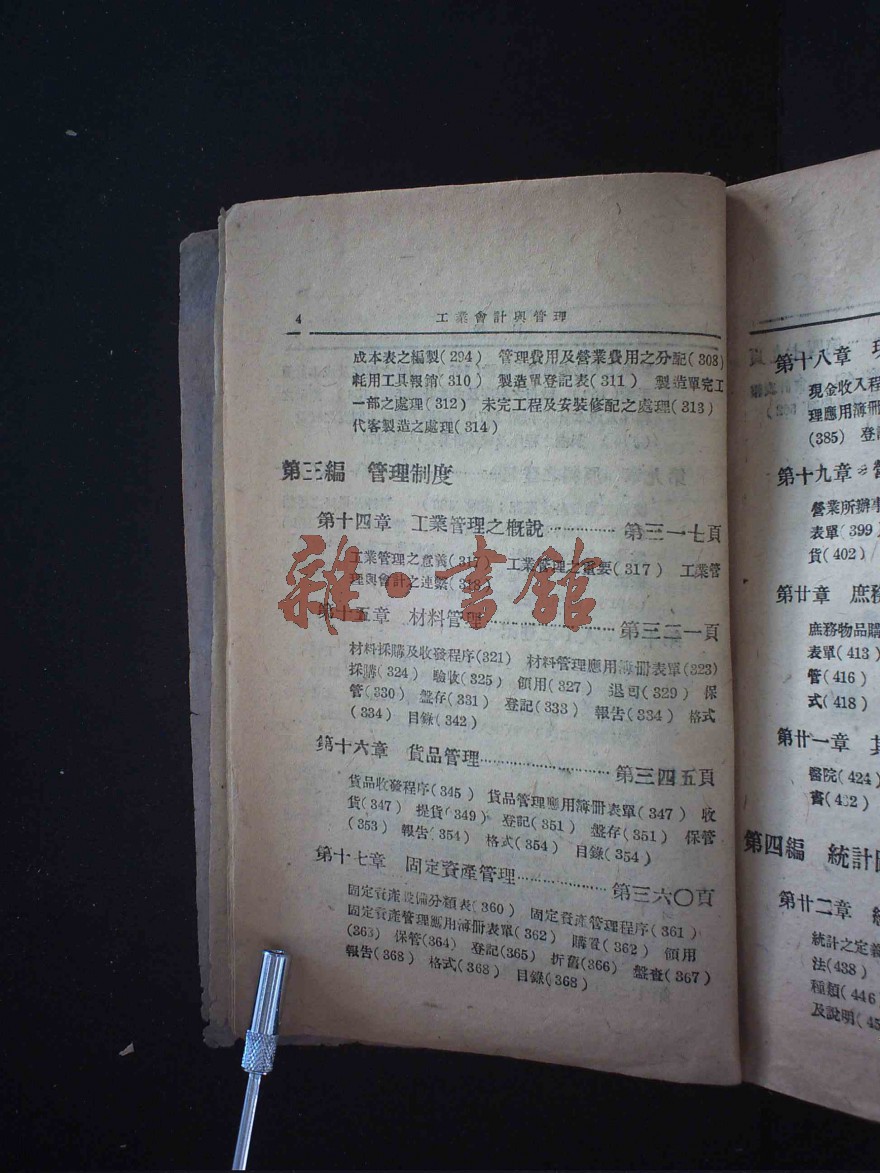 4 工業會計與管理
成本表之編製(294) 管理費用及營業費用之分配(303)
耗用工具報銷(310) 製造單登記表(311) 製造單完工
一部之處理(312) 未完工程及安裝修配之處理(313)
代客製造之處理(314)
第三編 管理制度
第十四章 工業管理之概說……………第三一七頁
工業管理之意義(317) 工業管理之重要(317) 工業管
理與會計之連繫(318)
第十五章 材料管理……………第三二一頁
材料採購及收發程序(321) 材料管理應用簿冊表單(323)
採購(324) 驗收(325) 領用(327) 退司(329) 保
管(330) 盤存(331) 登記(333) 報告(334) 格式
(334) 目錄(342)
第十六章 貨品管理……………第三四五頁
貨品收發程序(345) 貨品管理應用簿冊表單(347) 收
貨(347) 提貨(349) 登記(351) 盤存(351) 保管
(353) 報告(354) 格式(354) 目錄(354)
第十七章 固定資產管理……………第三六〇頁
固定資產設備分類表(360) 固定資產管理程序(361)
固定資產管理應用簿冊表單(362) 購置(362) 領用
(363) 保管(364) 登記(365) 折舊(366) 盤查(367)
報告(368) 格式(368) 目錄(368)
雜·書館
第十八章
現金收入程
理應用簿冊
(385) 登記
第十九章
營業所辦事
表單(399)
貨(402)
第廿章 庶務
庶務物品購
表單(413)
管(416)
式(418)
第廿一章 其
醫院(424)
書(432)
第四編 統計
第廿二章
統計之定義
法(438)
種類(446
及說明(45